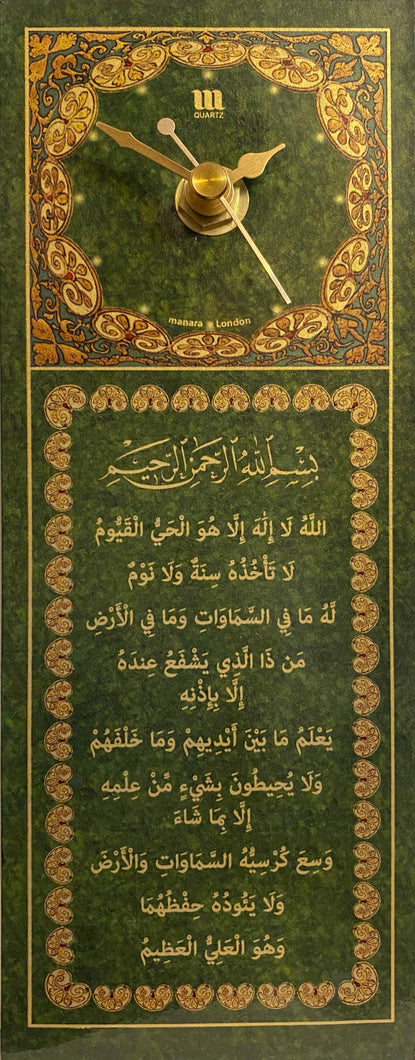 m
QUARTZ
manara London
بِسْمِ اللَّهِ الرَّحْمَٰنِ الرَّحِيمِ
اللَّهُ لَا إِلَٰهَ إِلَّا هُوَ الْحَيُّ الْقَيُّومُ
لَا تَأْخُذُهُ سِنَةٌ وَلَا نَوْمٌ
لَّهُ مَا فِي السَّمَاوَاتِ وَمَا فِي الْأَرْضِ
مَن ذَا الَّذِي يَشْفَعُ عِندَهُ
إِلَّا بِإِذْنِهِ
يَعْلَمُ مَا بَيْنَ أَيْدِيهِمْ وَمَا خَلْفَهُمْ
وَلَا يُحِيطُونَ بِشَيْءٍ مِّنْ عِلْمِهِ
إِلَّا بِمَا شَاءَ
وَسِعَ كُرْسِيُّهُ السَّمَاوَاتِ وَالْأَرْضَ
وَلَا يَئُودُهُ حِفْظُهُمَا
وَهُوَ الْعَلِيُّ الْعَظِيمُ